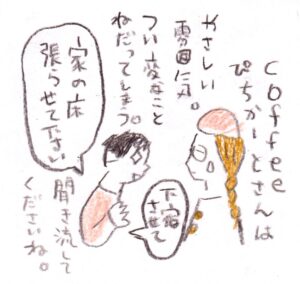 coffee
ぴちかーとさんは
やさしい
雰囲気。
つい変なこと
ねだってしまう。
家の床
張らせて下さい
下宿
させて
聞き流して
くださいね。